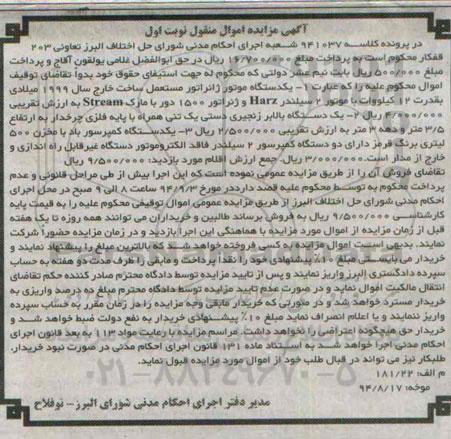 آگهی مزایده اموال منقول نوبت اول
در پرونده کلاسه ۹۴۱۰۳۷ شعبه اجرای احکام مدنی شورای حل اختلاف البرز تعاونی ۲۰۳
قفکار محکوم است به پرداخت مبلغ ۱۶/۷۰۰/۰۰۰ ریال در حق ابوالفضل غلامی یولقون آقاج و پرداخت
مبلغ ۵۰۰/۰۰۰ ریال بابت نیم عشر دولتی که محکوم له جهت استیفای حقوق خود بدوا تقاضای توقیف
اموال محکوم علیه را که عبارت ۱- یکدستگاه موتور ژانراتور مستعمل ساخت خارج سال ۱۹۹۹ میلادی
بقدرت ۱۲ کیلووات با موتور ۲ سیلندر Harz و ژنراتور ۱۵۰۰ دور با مارک Stream به ارزش تقریبی
۴/۰۰۰/۰۰۰ ریال ۲- یک دستگاه بالابر زنجیری دستی یک تنی همراه با پایه فلزی چرخدار به ارتفاع
۳/۵ متر و دهه ۳ متر به ارزش تقریبی ۲/۵۰۰/۰۰۰ ریال ۳- یکدستگاه کمپرسور باد با مخزن ۵۰۰
لیتری برنگ قرمز دارای دو دستگاه کمپسور ۲ سیلندر فاقد الکتروموتور دستگاه غیرقابل راه اندازی و
خارج از مدار است.۳/۰۰۰/۰۰۰ ریال. جمع ارزش اقلام مورد بازدید: ۹/۵۰۰/۰۰۰ ریال
تقاضای فروش آن را از طریق مزایده عمومی نموده است که این اجرا بیش از طی مراحل قانونی و عدم
پرداخت محکوم به توسط محکوم علیه قصد دارد در مورخ ۹۴/۹/۳ ساعت ۸ الی ۹ صبح در محل اجرای
احکام مدنی شورای حل اختلاف البرز از طریق مزایده عمومی اموال توقیفی محکوم علیه را به قیمت پایه
کارشناسی ۹/۵۰۰/۰۰۰ ریال به فروش برساند طالبین و خریداران می توانند همه روزه تا یک هفته
قبل از زمان مزایده از اموال مورد مزایده با هماهنگی این اجرا بازدید و در زمان مزایده حضورا شرکت
نمایند. بدیهی است اموال مزایده به کسی فروخته خواهد شد که بالاترین مبلغ را پیشنهاد نمایند و
خریدار می بایستی مبلغ ۱۰٪ پیشنهادی خود را نقدا پرداخت و مابقی را ظرف مدت دو هفته به حساب
سپرده دادگستری البرز واریز نمایند و پس از تایید مزایده توسط دادگاه محترم صادر کننده حکم تقاضای
انتقال مالکیت اموال نماید و در صورت عدم تایید مزایده توسط دادگاه محترم مبلغ ده درصد واریزی به
خریدار مسترد خواهد شد و در صورتی که خریدار مابقی وجه مزایده را در زمان مقرر به حساب سپرده
واریز ننمایند و یا اعلام انصراف نماید مبلغ ۱۰٪ پیشنهادی خریدار به نفع دولت ضبط خواهد شد و
خریدار حق هیچگونه اعتراضی را نخواهد داشت. مراسم مزایده با رعایت مواد ۱۱۳ به بعد قانون اجرای
احکام مدنی اجرا خواهد شد به استناد ماده ۱۳۱ قانون اجرای احکام مدنی در صورت نبود خریدار،
طلبکار نیز می تواند در قبال طلب خود از اموال مورد مزایده قبول نماید.
م الف: ۱۸۱/۲۲
موخه: ۹۴/۸/۱۷
مدیر دفتر اجرای احکام مدنی شورای البرز - نوفلاح
۰۲۱-۸۸۳۴۹۶۷۰-۵